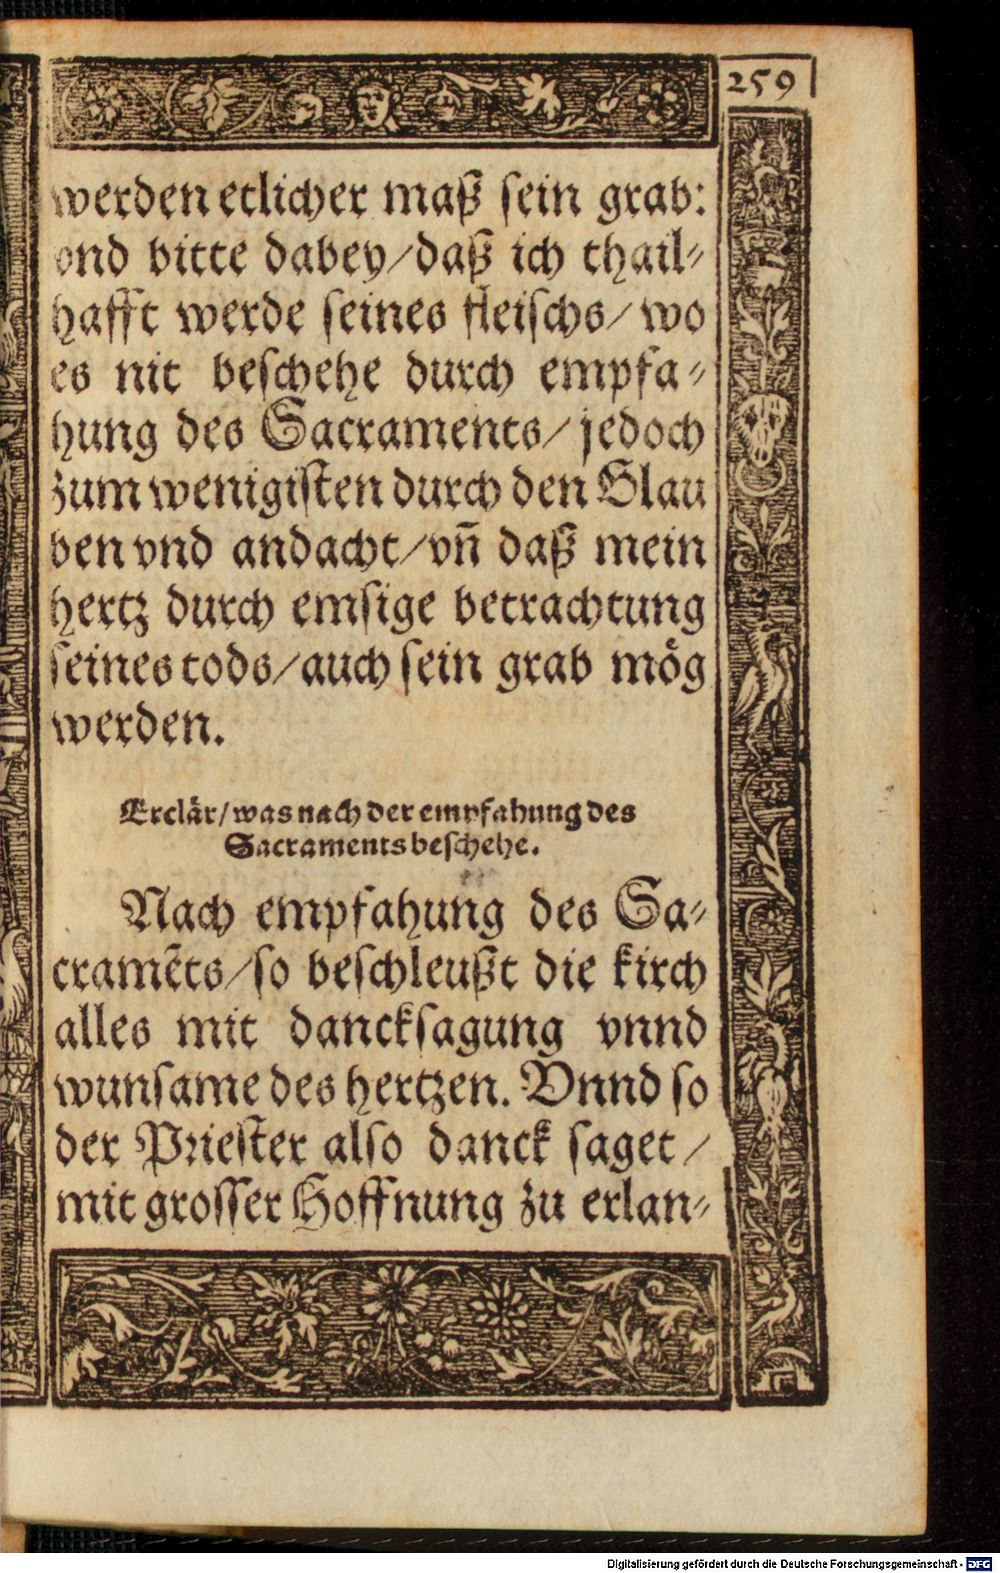 259
werden etlicher maß sein grab:
vnd bitte dabey/daß ich thail⸗
hafft werde seines fleischs/wo
es nit beschehe durch empfa⸗
hung des Sacraments/jedoch
zum wenigisten durch den Glau
ben vnd andacht/vñ daß mein
hertz durch emsige betrachtung
seines tods/auch sein grab mög
werden.
Erclär/was nach der empfahung des
Sacraments beschehe.
Nach empfahung des Sa⸗
cramẽts/so beschleußt die kirch
alles mit dancksagung vnnd
wunsame des hertzen. Vnnd so
der Priester also danck saget/
mit grosser Hoffnung zu erlan⸗
Digitalisierung gefördert durch die Deutsche Forschungsgemeinschaft - DFG